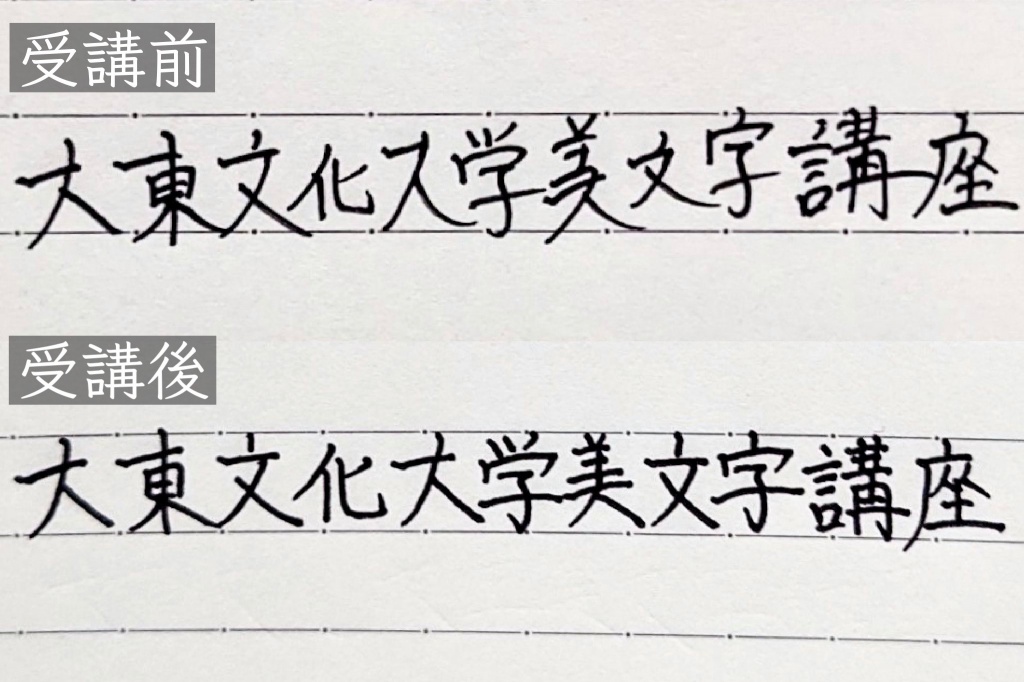 受講前
大東文化大学美文字講座
受講後
大東文化大学美文字講座